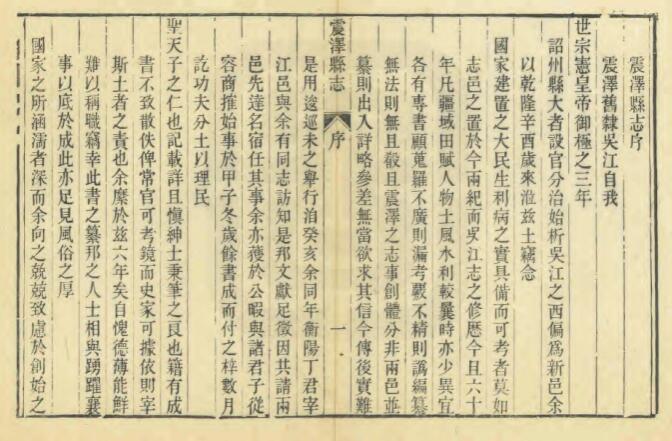 震澤縣志序
震澤舊隸吳江自我
世宗憲皇帝御極之三年
詔州縣大者設官分治始析吳江之西偏爲新邑余
以乾隆辛酉歲來涖兹土竊念
國家建置之大民生利病之實具備而可考者莫如
志邑之置於今兩紀而吳江志之修歷今且六十
年凡疆域田賦人物土風水利較曩時亦少異宜
各有專書顧蒐羅不廣則漏考覈不精則譌編纂
無法則無且觀且震澤之志事創體分非兩邑並
纂則出入詳略參差無當欲求其信今傳後實難
震澤縣志
序
一
是用逡巡未之舉行洎癸亥余同年衡陽丁君宰
江邑與余有同志訪知是邦文獻足徵因其請兩
邑先達名宿任其事余亦獲於公暇與諸君子從
容商搉始事於甲子冬歲餘書成而付之梓數月
訖功夫分土以理民
聖天子之仁也記載詳且愼紳士秉筆之良也籍有成
書不致散佚俾常官可考鏡而史家可據依則宰
斯土者之責也余縻於兹六年矣自愧德薄能鮮
難以稱職竊幸此書之纂邦之人士相與踴躍襄
事以底於成此亦足見風俗之厚
國家之所涵濡者深而余向之兢兢致慮於創始之